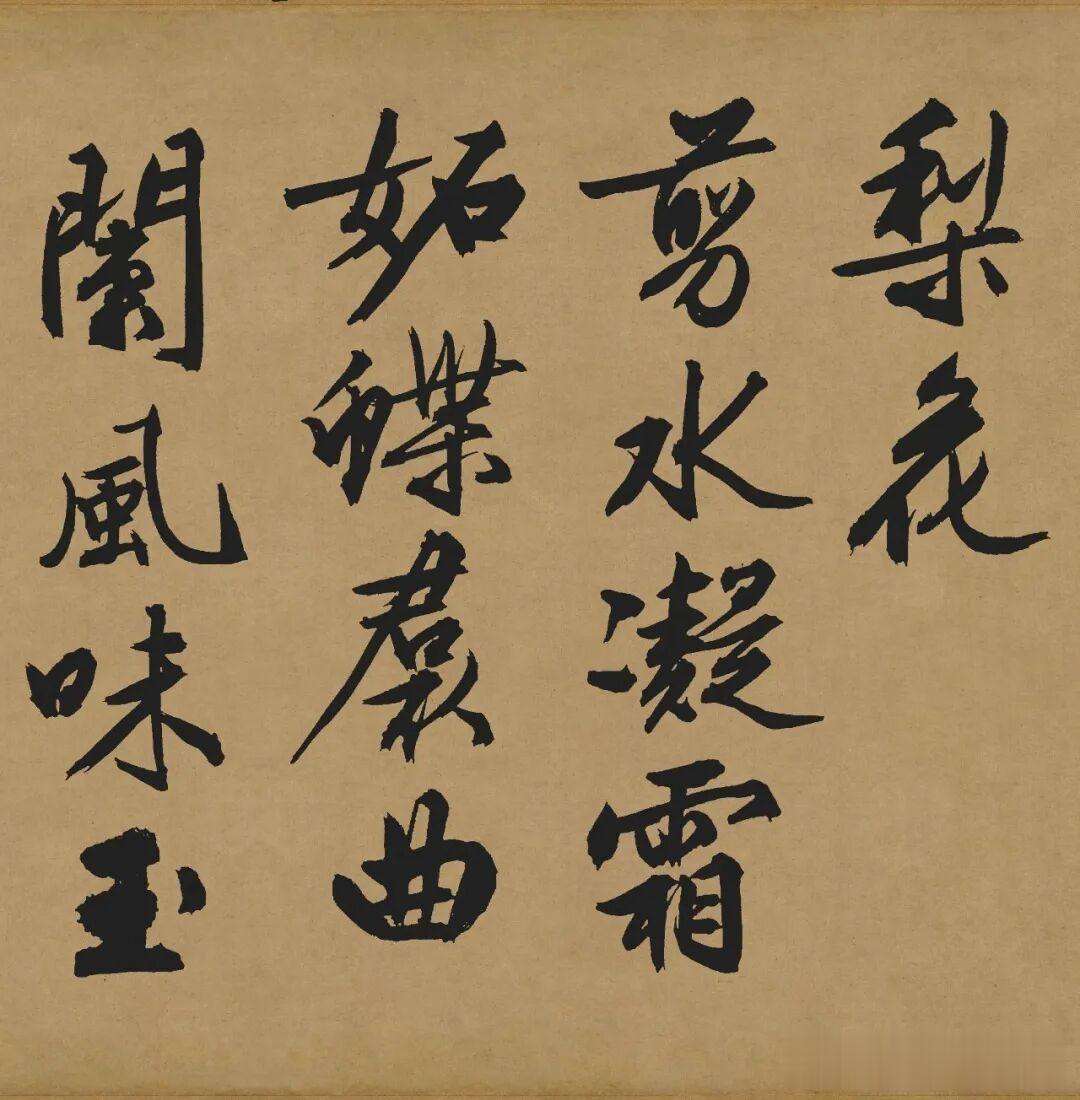 梨花
剪水凝霜
妬蝶裠曲
闌風味玉